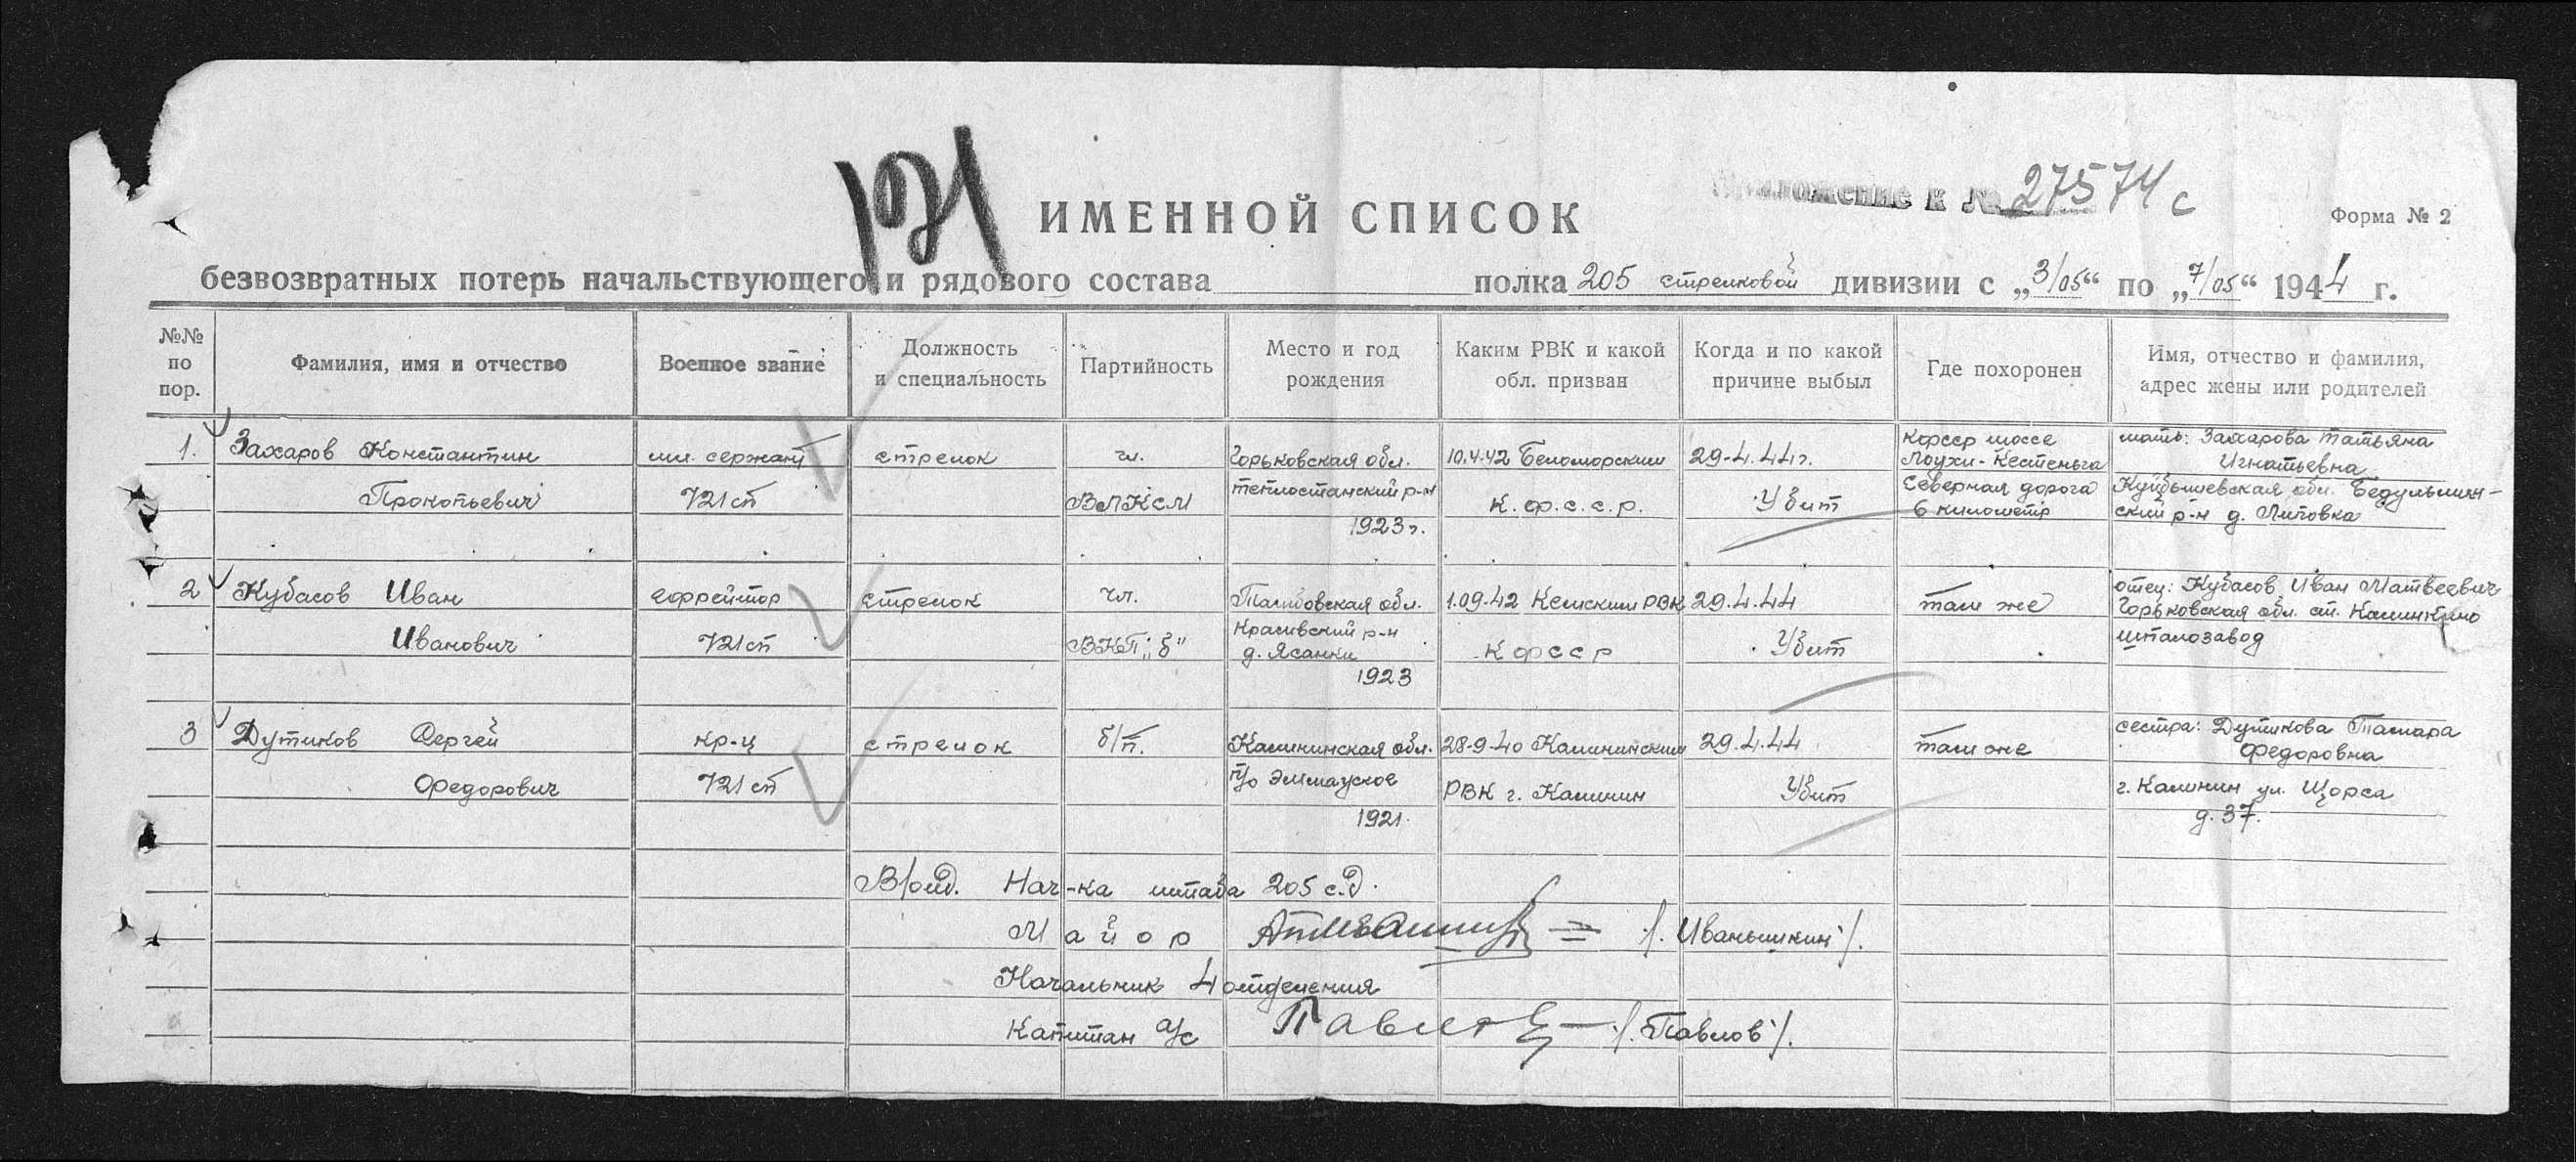 121
Приложение к № 27574с
ИМЕННОЙ СПИСОК
Форма № 2
безвозвратных потерь начальствующего и рядового состава полка 205 стрелковой дивизии с „3/05“ по „7/05“ 1944 г.
№№ по пор.
Фамилия, имя и отчество
Военное звание
Должность и специальность
Партийность
Место и год рождения
Каким РВК и какой обл. призван
Когда и по какой причине выбыл
Где похоронен
Имя, отчество и фамилия, адрес жены или родителей
1. Захаров Константин
Прокопьевич
мл. сержант
721 сп
стрелок
чл.
ВЛКСМ
Горьковская обл.
теплостанский р-н
1923 г.
10.4.42 Беломорским
К.ф.с.с.р.
29-4.44 г.
Убит
Кфсср шоссе
Лоухи-Кестеньга
Северная дорога
6 километр
мать: Захарова Татьяна
Игнатьевна
Куйбышевская обл. Бедульмин-
ский р-н д. Липовка
2 Кубасов Иван
Иванович
ефрейтор
721 сп
стрелок
чл.
ВКП „б"
Тамбовская обл.
Красивский р-н
д. Ясанки
1923
1.09.42 Кемским РВК
КФССР
29.4.44
Убит
там же
отец: Кубасов Иван Матвеевич
Горьковская обл. ст. Калинкино
шпалозавод
3 Дутиков Сергей
Федорович
кр-ц
721 сп
стрелок
б/п.
Калининская обл.
п/о Эммауское
1921
28-9-40 Калининским
РВК г. Калинин
29.4.44
Убит
там же
сестра: Дутикова Тамара
Федоровна
г. Калинин ул. Щорса
д. 37.
Нач-ка штаба 205 с.д.
Майор /. Иваньшкин /.
Начальник 4 отделения
Капитан а/с Павлов /. Павлов /.